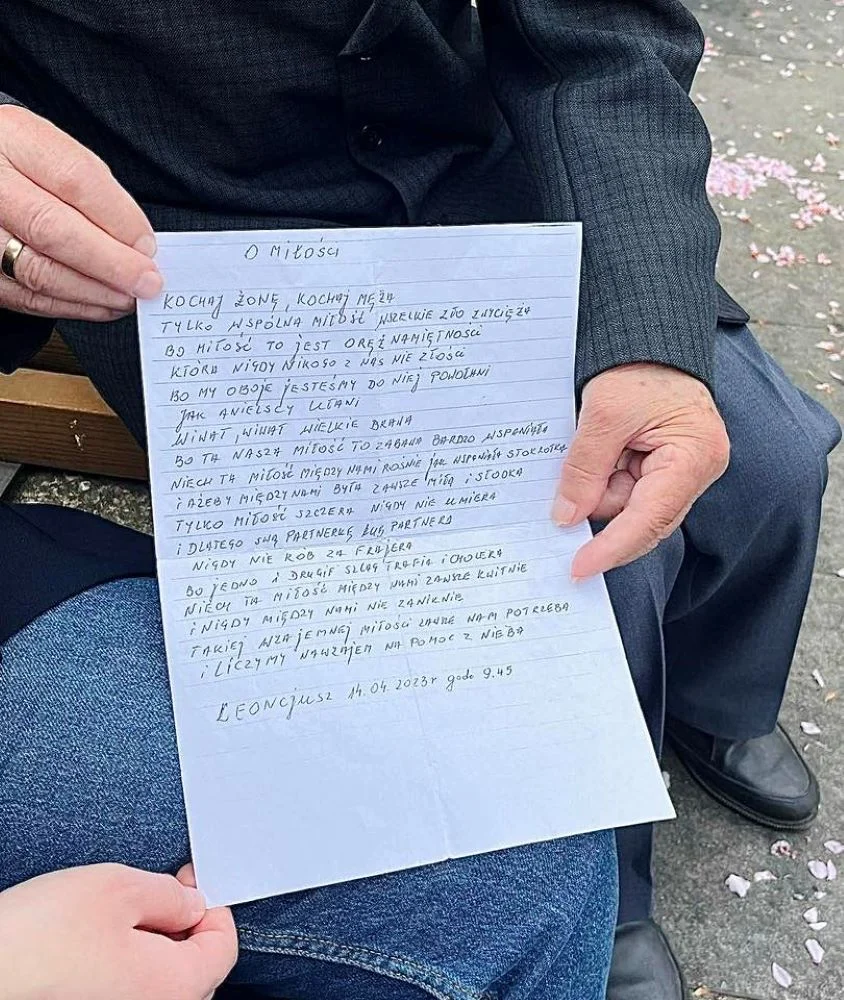 O MIŁOŚCI
KOCHAJ ŻONĘ, KOCHAJ MĘŻA
TYLKO WSPÓLNA MIŁOŚĆ WSZELKIE ZŁO ZWYCIĘŻA
BO MIŁOŚĆ TO JEST ORĘŻ NAMIĘTNOŚCI
KTÓRA NIGDY NIKOGO Z NAS NIE ZŁOŚCI
BO MY OBOJE JESTEŚMY DO NIEJ POWOŁANI
JAK ANIELSCY UŁANI
WIWAT, WIWAT WIELKIE BRAWA
BO TA NASZA MIŁOŚĆ TO ZABAWA BARDZO WSPANIAŁA
NIECH TA MIŁOŚĆ MIĘDZY NAMI ROŚNIE JAK WSPANIAŁA STOKROTKA
I AŻEBY MIĘDZY NAMI BYŁA ZAWSZE MIŁA I SŁODKA
TYLKO MIŁOŚĆ SZCZERA NIGDY NIE UMIERA
I DLATEGO SWĄ PARTNERKĘ PARTNERA
NIGDY NIE RÓB ZA FRAJERA
BO JEDNO I DRUGIE SZLAG TRAFIA I CHOLERA
NIECH TA MIŁOŚĆ MIĘDZY NAMI ZAWSZE KWITNIE
I NIGDY MIĘDZY NAMI NIE ZANIKNIE
TAKIEJ WZAJEMNEJ MIŁOŚCI ZAWSZE NAM POTRZEBA
I LICZYMY NAWZAJEM NA POMOC Z NIEBA
LEONCJUSZ 14.04.2023r godz 9.45